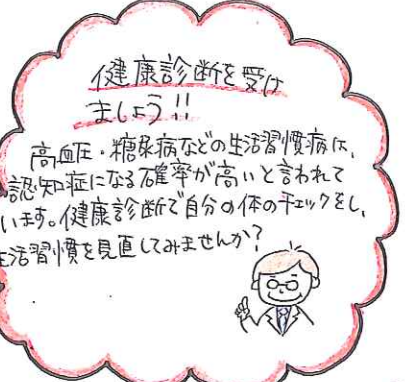 健康診断を受け
ましょう!!
高血圧・糖尿病などの生活習慣病は、
認知症になる確率が高いと言われて
います。健康診断で自分の体のチェックをし、
生活習慣を見直してみませんか?